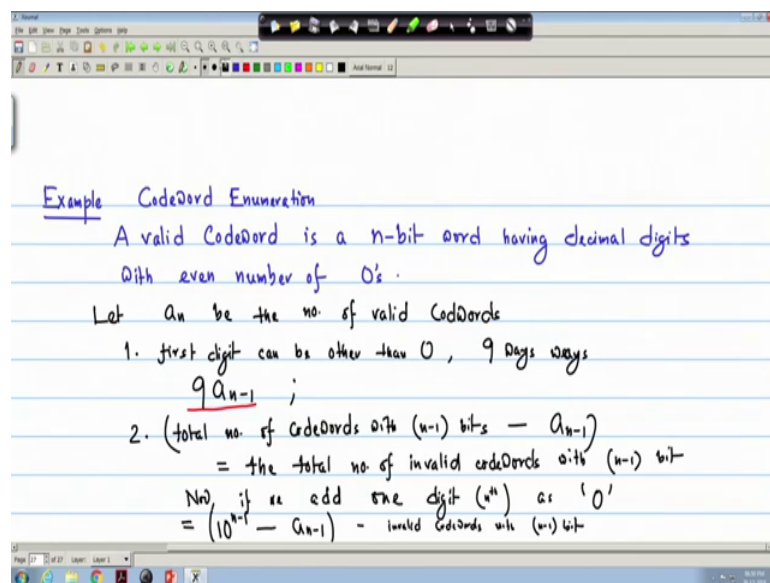 Journal
File Edit View Page Tools Options Help
Arial Normal 12
Example CodeWord Enumeration
A valid CodeWord is a n-bit word having decimal digits
With even number of 0's.
Let an be the no. of valid CodWords
1. first digit can be other than 0, 9 Ways ways
9 an-1 ;
2. (total no. of codeWords with (n-1) bits - an-1)
= the total no. of invalid codeWords with (n-1) bit
Now, if we add one digit (nth) as '0'
= (10^n-1 - an-1) - invalid codewords with (n-1) bit
Page 27 of 27 Layer: Layer 1